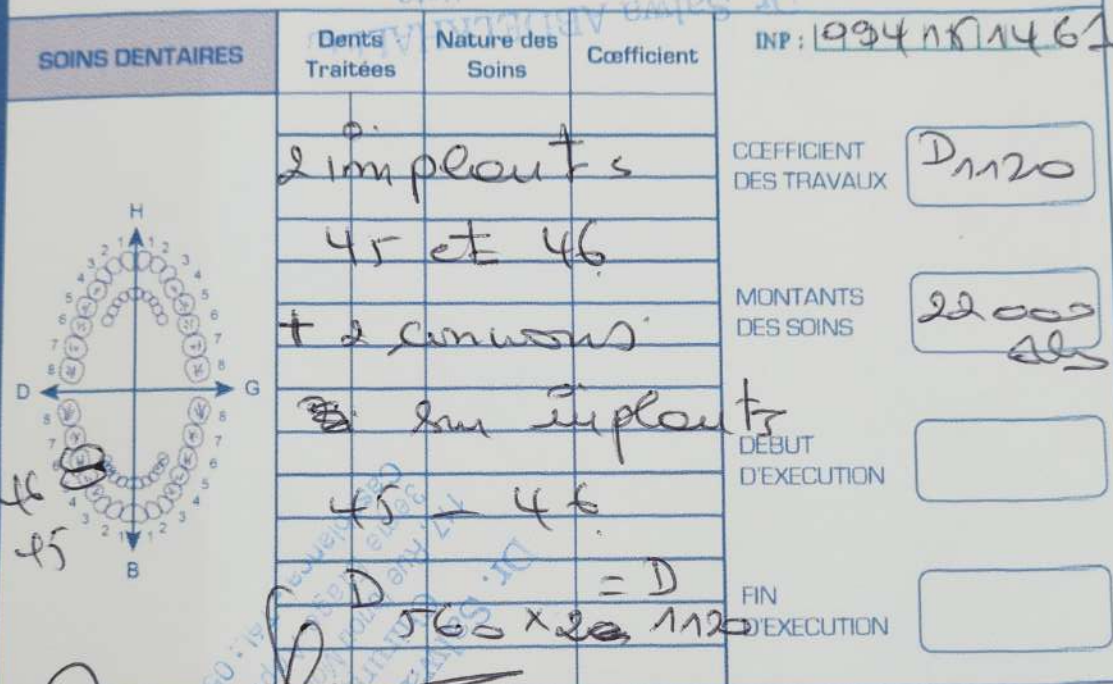 SOINS DENTAIRES
Dents Traitées
Nature des Soins
Cœfficient
INP :
2 implants
45 et 46
+ 2 couronnes
sur implants
45 - 46
D 560 x 2 = D 1120
CŒFFICIENT DES TRAVAUX
D1120
MONTANTS DES SOINS
22000 dhs
DEBUT D'EXECUTION
FIN D'EXECUTION
H
D
G
B
46
45